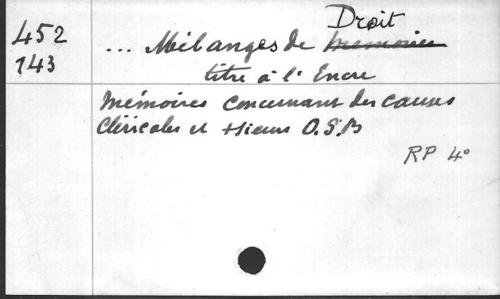 452
143
... Mélanges de Droit
titre à l'Encre
Mémoires concernant des causes
Cléricales et O.S.B
RP 4°